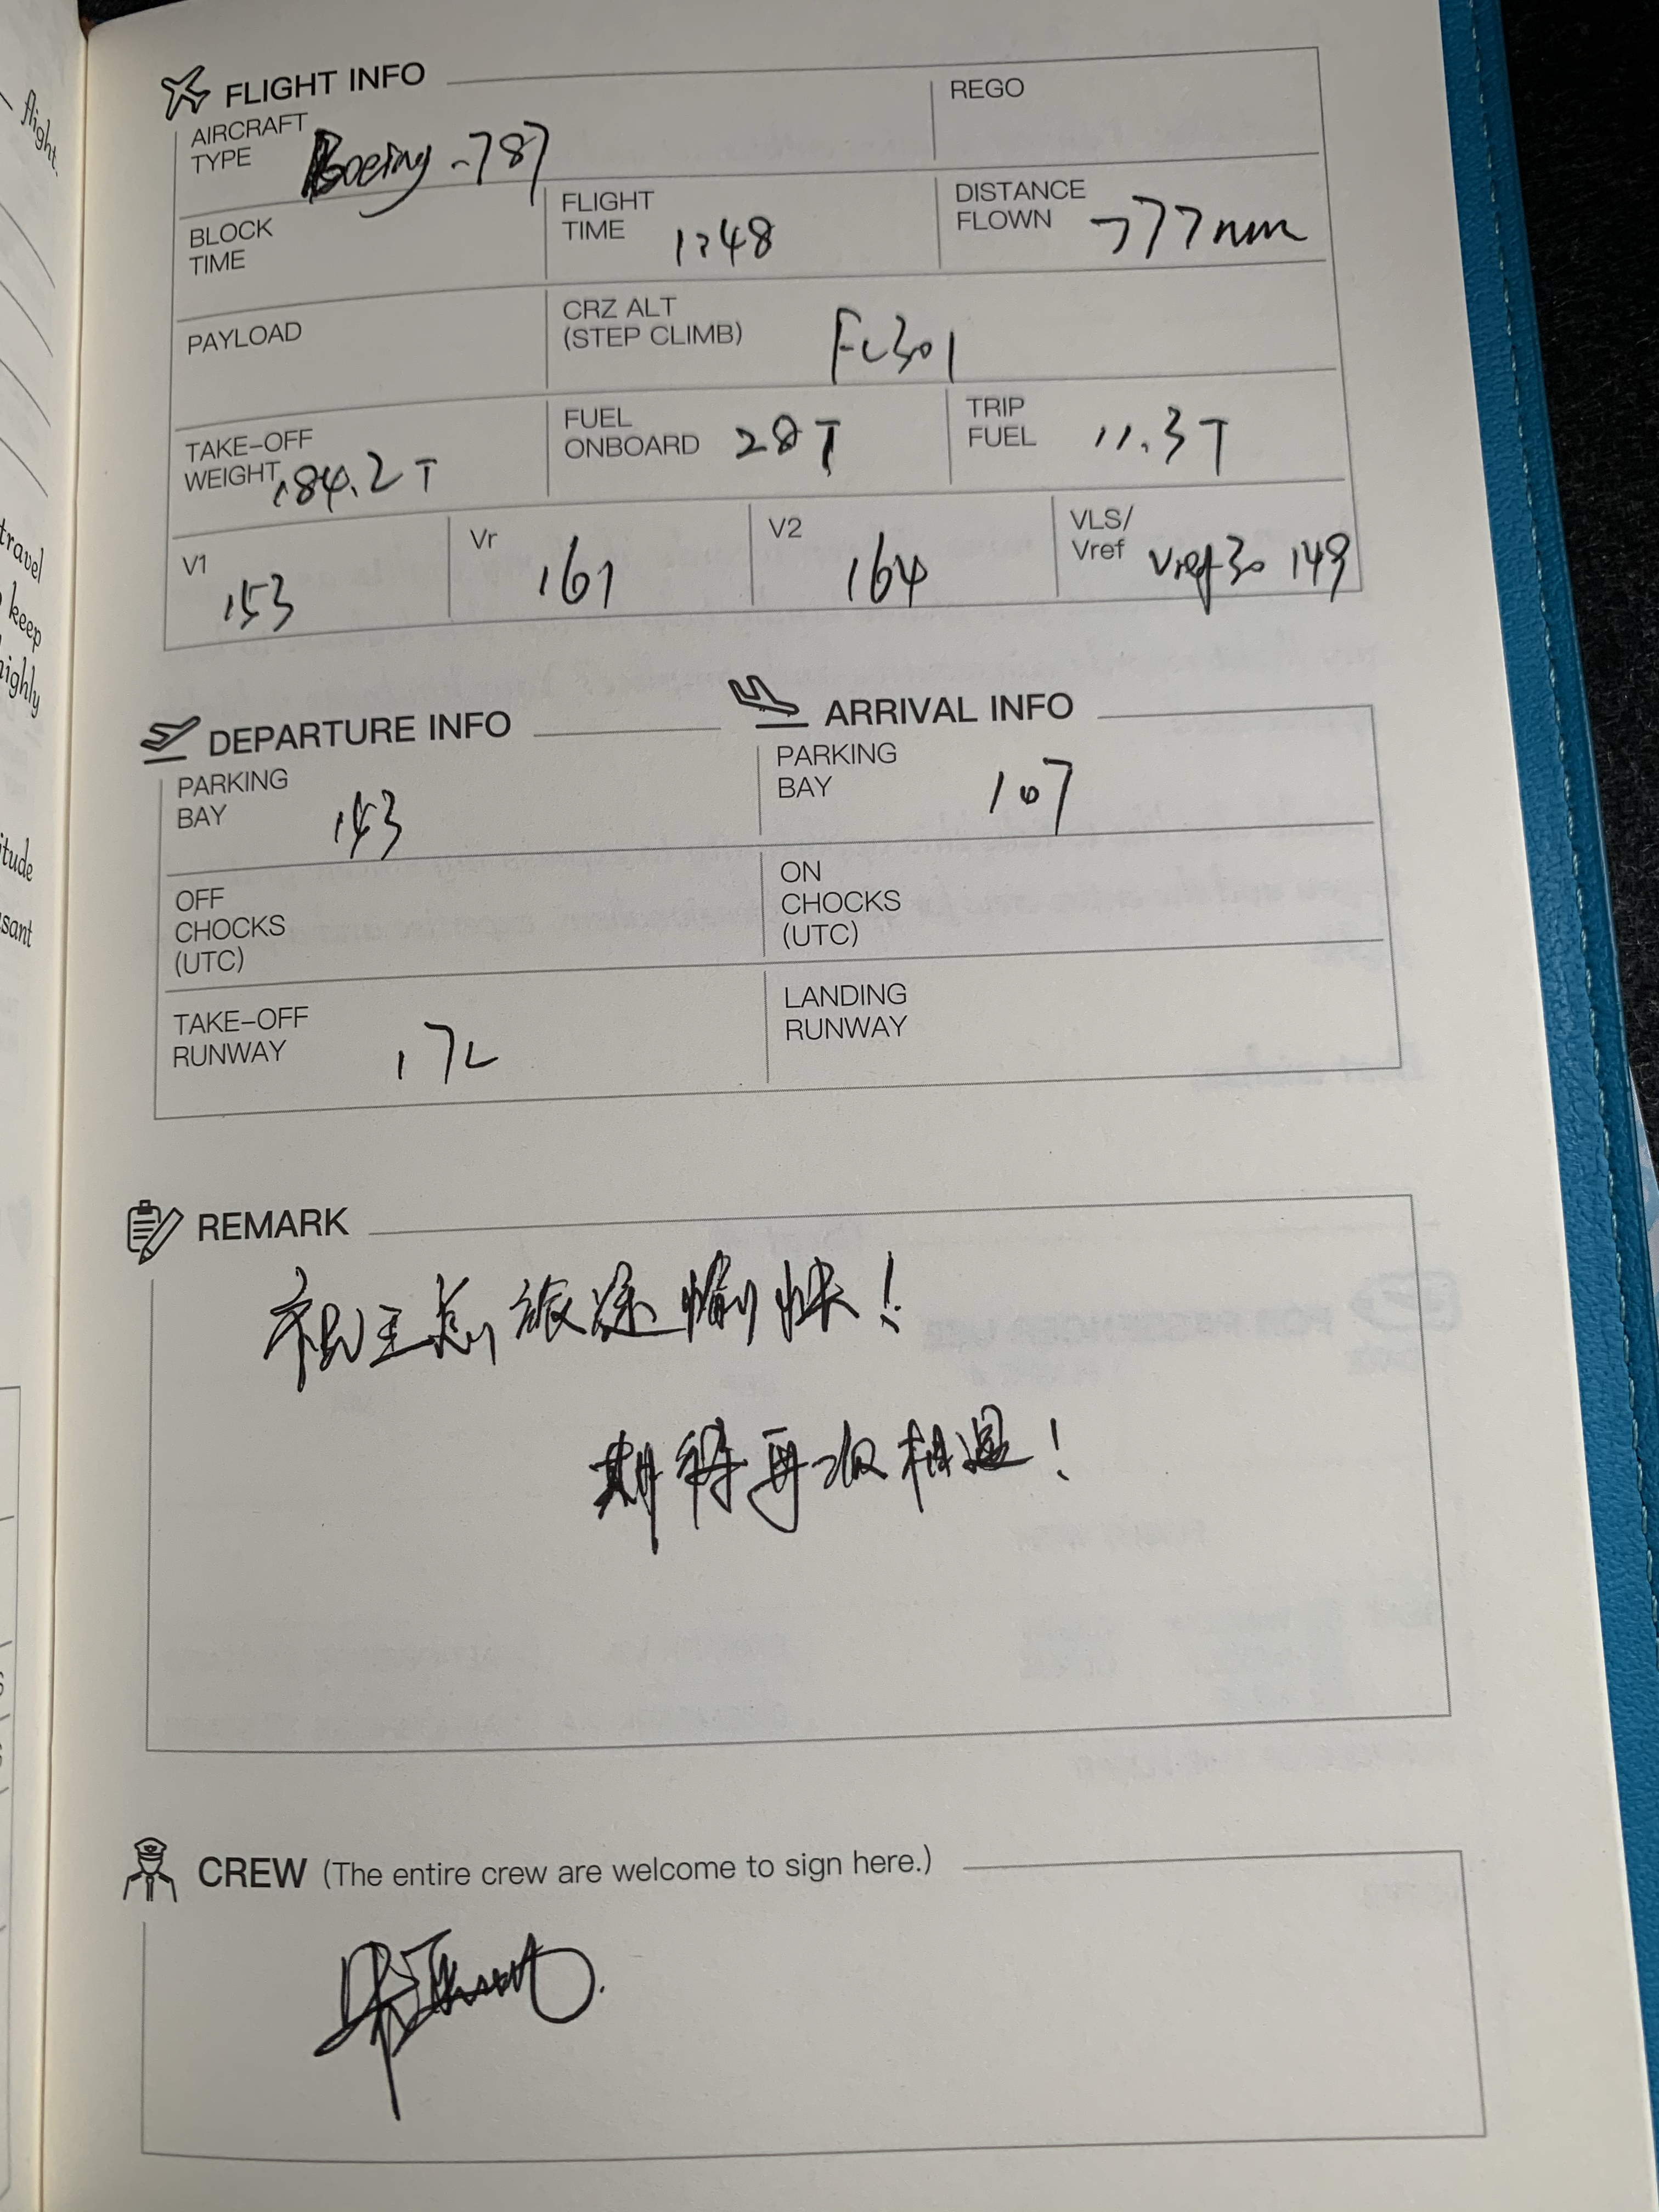 flight.
travel
keep
highly
itude
sant
FLIGHT INFO
AIRCRAFT TYPE Boeing-787
REGO
BLOCK TIME
FLIGHT TIME 1:48
DISTANCE FLOWN 777nm
PAYLOAD
CRZ ALT (STEP CLIMB) FL301
TAKE-OFF WEIGHT 184.2T
FUEL ONBOARD 28T
TRIP FUEL 11.3T
V1 153
Vr 161
V2 164
VLS/Vref Vref30 149
DEPARTURE INFO
ARRIVAL INFO
PARKING BAY 143
PARKING BAY 107
OFF CHOCKS (UTC)
ON CHOCKS (UTC)
TAKE-OFF RUNWAY 17L
LANDING RUNWAY
REMARK
祝王总旅途愉快!
期待再次相遇!
CREW (The entire crew are welcome to sign here.)